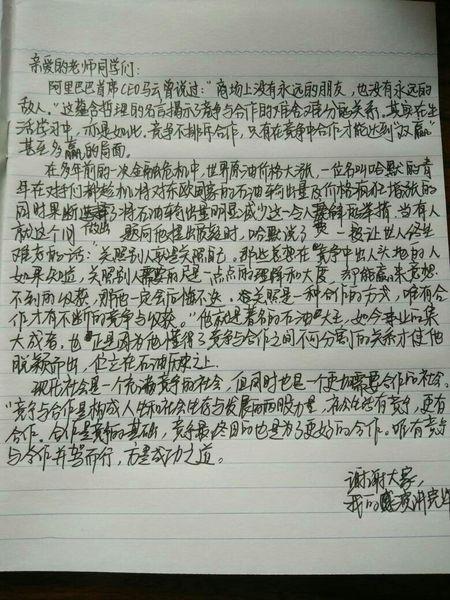 亲爱的老师同学们:
阿里巴巴首席CEO马云曾说过:"商场上没有永远的朋友,也没有永远的
敌人。"这蕴含哲理的名言揭示了竞争与合作的难舍难分的关系。其实在生
活学习中,亦是如此,竞争不排斥合作,只有在竞争中合作才能达到"双赢"
甚至多赢的局面。
在多年前的一次金融危机中,世界原油价格大涨,一位名叫哈默的青
年在对手们都趁机将对东欧国家的石油输出量及价格有所增涨的
同时果断选择了将石油输出量明显减少这一令人费解的举措,当有人
就这个问题向他提出质疑时,哈默说了一段让世人终生
难忘的话:"关照别人就是关照自己。那些总想在竞争中出人头地的人
如果知道,关照别人需要的只是一点点的理解和大度,却能赢来意想
不到的收获,那他一定会后悔不迭。关照是一种合作的方式,唯有合
作才有不断的竞争与收获。"他就是著名的石油大王,如今事业的集
大成者,也正是因为他懂得了竞争与合作之间不可分离的关系才使他
脱颖而出,伫立在石油历史之上.
现代社会是一个充满竞争的社会,但同时也是一个更加需要合作的社会。
"竞争与合作是构成人生和社会生存与发展的两股力量,社会生活有竞争,更有
合作。合作是竞争的基础,竞争最终目的也是为了更好的合作。唯有竞争
与合作并驾而行,方是成功之道。
谢谢大家,
我的演讲完毕